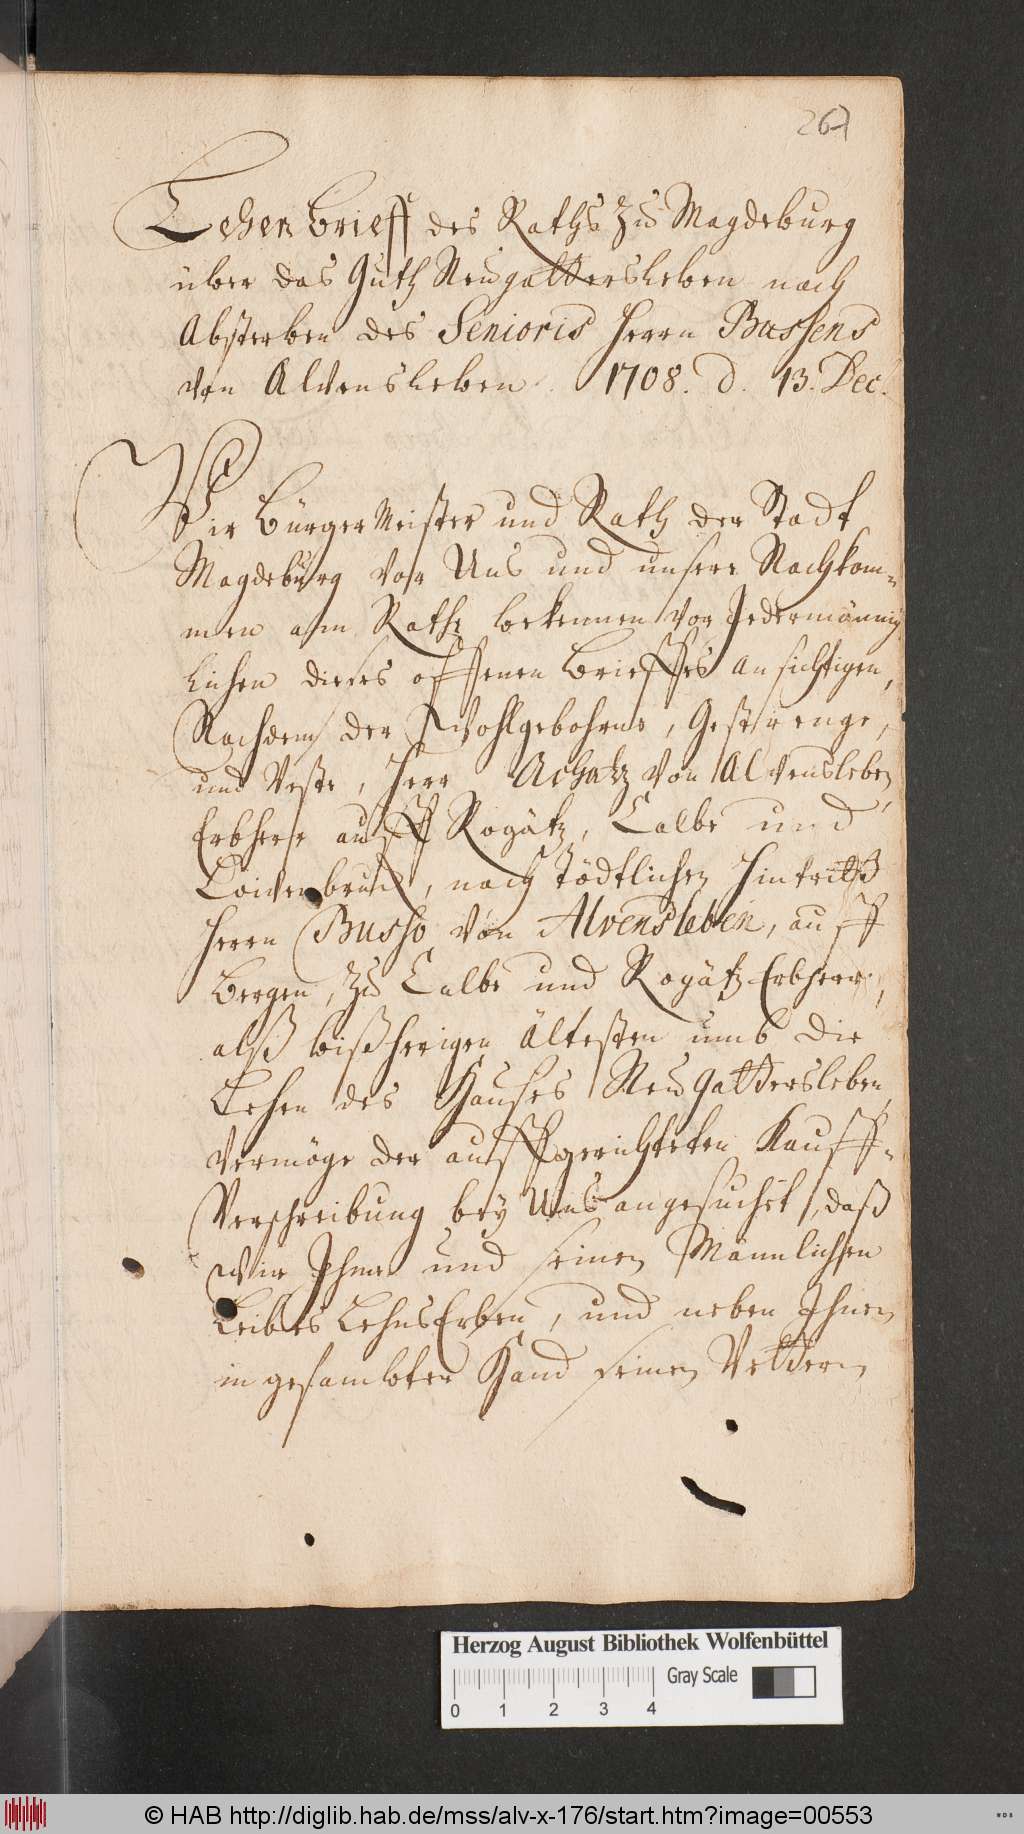 267
Lehen brieff des Raths zu Magdeburg
über das Guth Neugattersleben nach
Absterben des Senioris Herrn Bussens
von Alvensleben. 1708. d. 13. Dec.
Wir Bürger Meister und Rath der Stadt
Magdeburg vor Uns und unsere Nachkom-
men am Rathe bekennen vor Jedermännig
lichen dieses offenen Brieffes ansichtigen,
Nachdem der Wohlgebohrne, Gestrenge,
und Veste, Herr Achatz von Alvensleben,
Erbherr auff Rogätz, Calbe und
nach tödtlichen Hintritt
Herrn Busso von Alvensleben, auff
Bergen, zu Calbe und Rogätz Erbherr,
alß bißherigen Ältesten umb die
Lehen des Hauses Neugattersleben,
vermöge der auffgerichteten Kauff-
Verschreibung bey Uns angesucht, daß
Wir Ihme und seinen Männlichen
Leibes LehnsErben, und neben Ihnen
in gesambter Hand seinen Vettern
Herzog August Bibliothek Wolfenbüttel
Gray Scale
0 1 2 3 4
© HAB http://diglib.hab.de/mss/alv-x-176/start.htm?image=00553